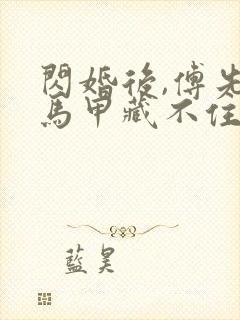 閃婚後,傅先
馬甲藏不住
藍昊